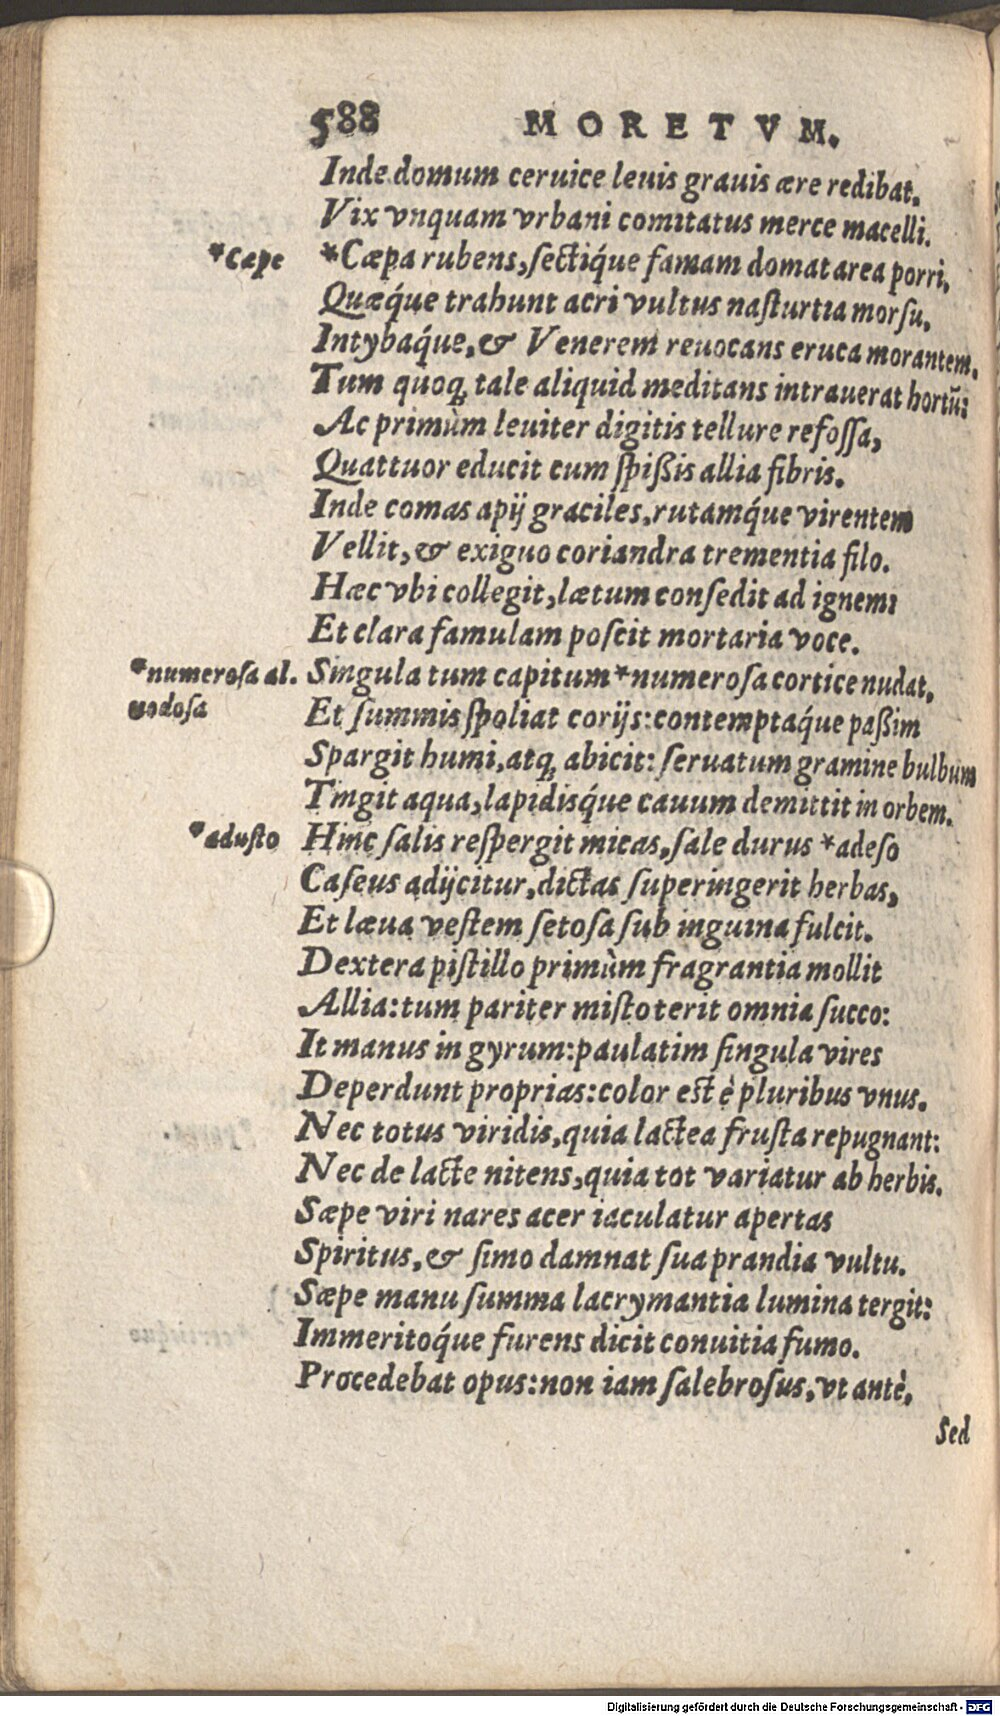 588 MORETVM.
Inde domum ceruice leuis grauis ære redibat.
Vix vnquam vrbani comitatus merce macelli.
*Cæpe *Cæpa rubens, ſectíq́ue famam domat area porri,
Quæq́ue trahunt acri vultus naſturtia morſu,
Intybaq́ue, & Venerem reuocans eruca morantem.
Tum quoq; tale aliquid meditans intrauerat hortũ:
Ac primùm leuiter digitis tellure refoſſa,
Quattuor educit cum ſpißis allia fibris.
Inde comas apij graciles, rutamq́ue virentem
Vellit, & exiguo coriandra trementia filo.
Hæc vbi collegit, lætum conſedit ad ignem:
Et clara famulam poſcit mortaria voce.
*numeroſa al. Singula tum capitum *numeroſa cortice nudat,
nodoſa Et ſummis ſpoliat corijs: contemptaq́ue paßim
Spargit humi, atq; abicit: ſeruatum gramine bulbum
Tingit aqua, lapidisq́ue cauum demittit in orbem.
*aduſto Hinc ſalis reſpergit micas, ſale durus *adeſo
Caſeus adijcitur, dictas ſuperingerit herbas,
Et læua veſtem ſetoſa ſub inguina fulcit.
Dextera piſtillo primùm fragrantia mollit
Allia: tum pariter miſto terit omnia ſucco:
It manus in gyrum: paulatim ſingula vires
Deperdunt proprias: color est è pluribus vnus.
Nec totus viridis, quia lactea fruſta repugnant:
Nec de lacte nitens, quia tot variatur ab herbis.
Sæpe viri nares acer iaculatur apertas
Spiritus, & ſimo damnat ſua prandia vultu.
Sæpe manu ſumma lacrymantia lumina tergit:
Immeritoq́ue furens dicit conuitia fumo.
Procedebat opus: non iam ſalebroſus, vt antè,
Sed
Digitalisierung gefördert durch die Deutsche Forschungsgemeinschaft - DFG